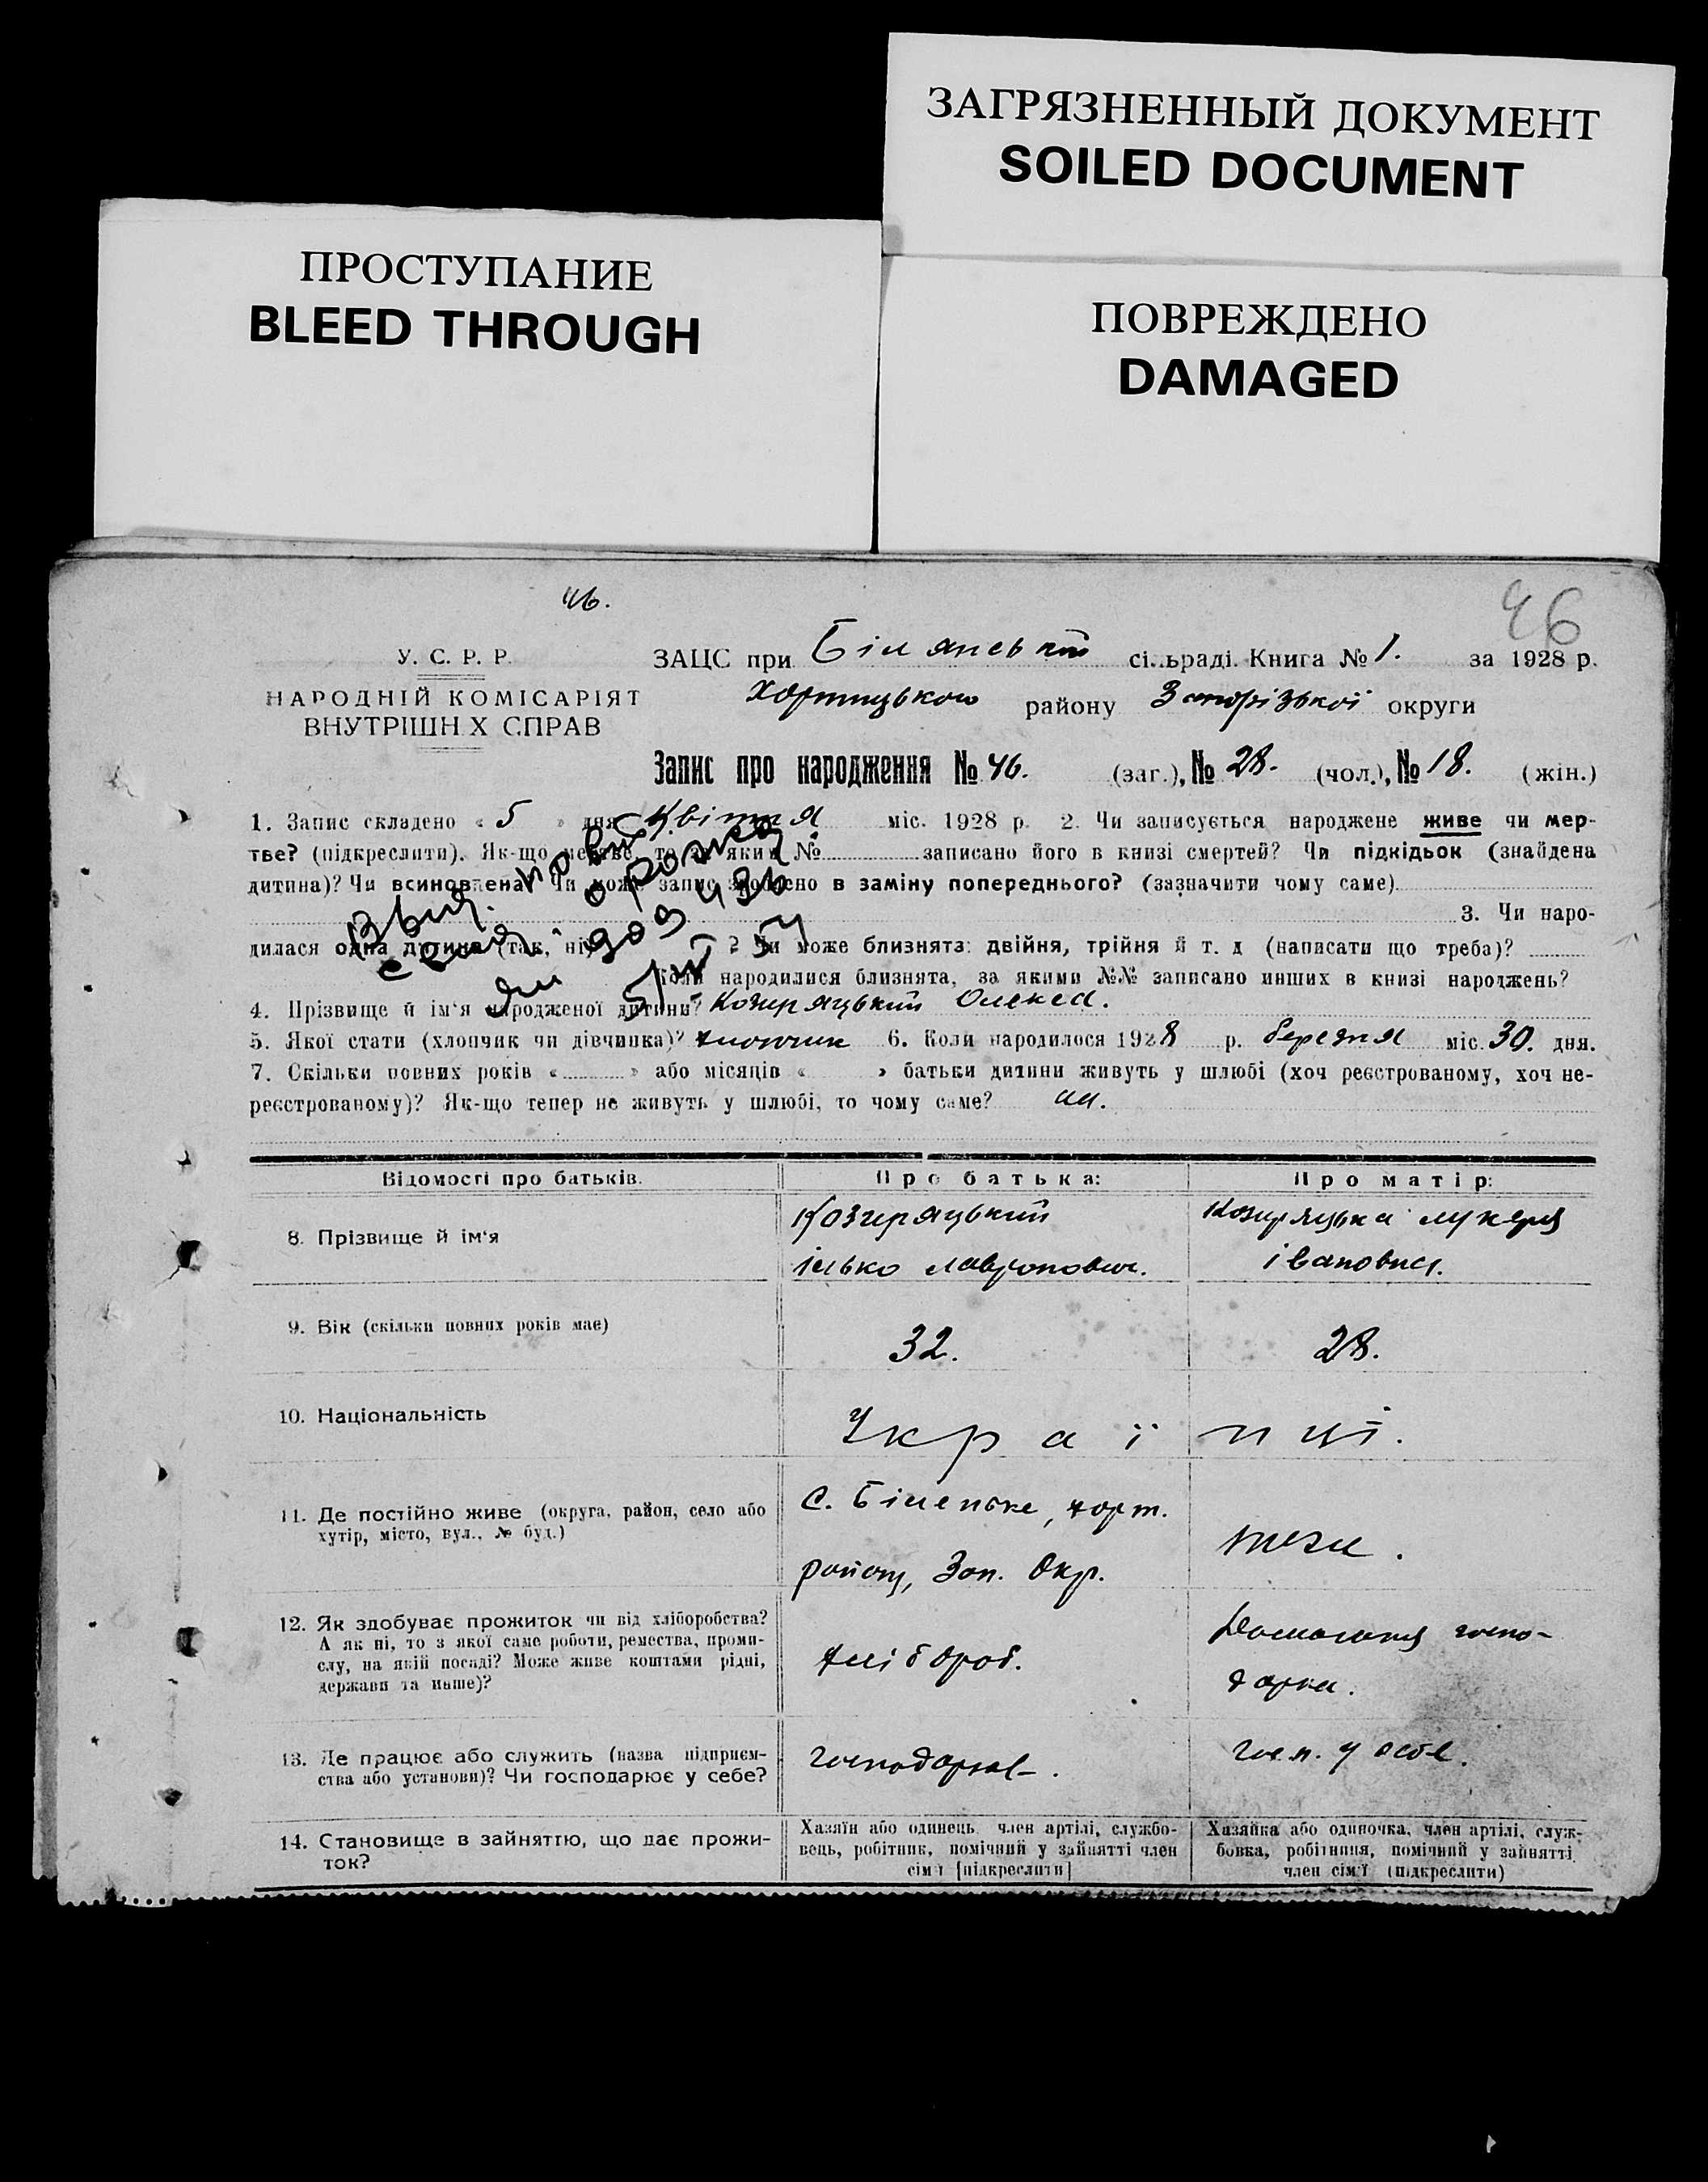 ЗАГРЯЗНЕННЫЙ ДОКУМЕНТ
SOILED DOCUMENT
ПРОСТУПАНИЕ
BLEED THROUGH
ПОВРЕЖДЕНО
DAMAGED
46.
46
У. С. Р. Р.
НАРОДНІЙ КОМІСАРІЯТ
ВНУТРІШН Х СПРАВ
ЗАЦС при Білянській сі.ьраді. Книга № 1. за 1928 р.
Хортицького району Запорізької округи
Запис про народження № 46. (заг.), № 28. (чол.), № 18. (жін.)
1. Запис складено « 5 » дня Квітня міс. 1928 р. 2. Чи записується народжене живе чи мер-
тве? (підкреслити). Як-що мертве, то за яким № записано його в книзі смертей? Чи підкідьок (знайдена
дитина)? Чи всиновлена? Чи може запис зроблено в заміну попереднього? (зазначити чому саме)
3. Чи наро-
дилася одна дитина (так, ні) ? Чи може близнята: двійня, трійня й т. д (написати що треба)?
Коли народилися близнята, за якими №№ записано инших в книзі народжень?
4. Прізвище й ім'я народженої дитини? Козиряцький Олекса.
5. Якої стати (хлопчик чи дівчинка)? хлопчик 6. Коли народилося 1928 р. березня міс. 30. дня.
7. Скільки повних років « » або місяців « » батьки дитини живуть у шлюбі (хоч реєстрованому, хоч не-
реєстрованому)? Як-що тепер не живуть у шлюбі, то чому саме?
Відомості про батьків.
Про батька:
Про матір:
8. Прізвище й ім'я
Козиряцький
ілько Лавронович.
Козиряцька Лукеря
івановна.
9. Вік (скільки повних років має)
32.
28.
10. Національність
Українці.
11. Де постійно живе (округа, район, село або
хутір, місто, вул., № буд.)
С. Біленьке, хорт.
району, Зап. Окр.
теж .
12. Як здобуває прожиток чи від хліборобства?
А як ні, то з якої саме роботи, ремества, проми-
слу, на якій посаді? Може живе коштами рідні,
держави та инше)?
хлібороб.
Домашня госпо-
дарка.
13. Де працює або служить (назва підприєм-
ства або установи)? Чи господарює у себе?
госп. у себе.
14. Становище в зайняттю, що дає прожи-
ток?
Хазяїн або одинець, член артілі, службо-
вець, робітник, помічний у зайнятті член
сім'ї [підкреслити]
Хазяйка або одиночка, член артілі, служ-
бовка, робітниця, помічний у зайнятті
член сім'ї (підкреслити)